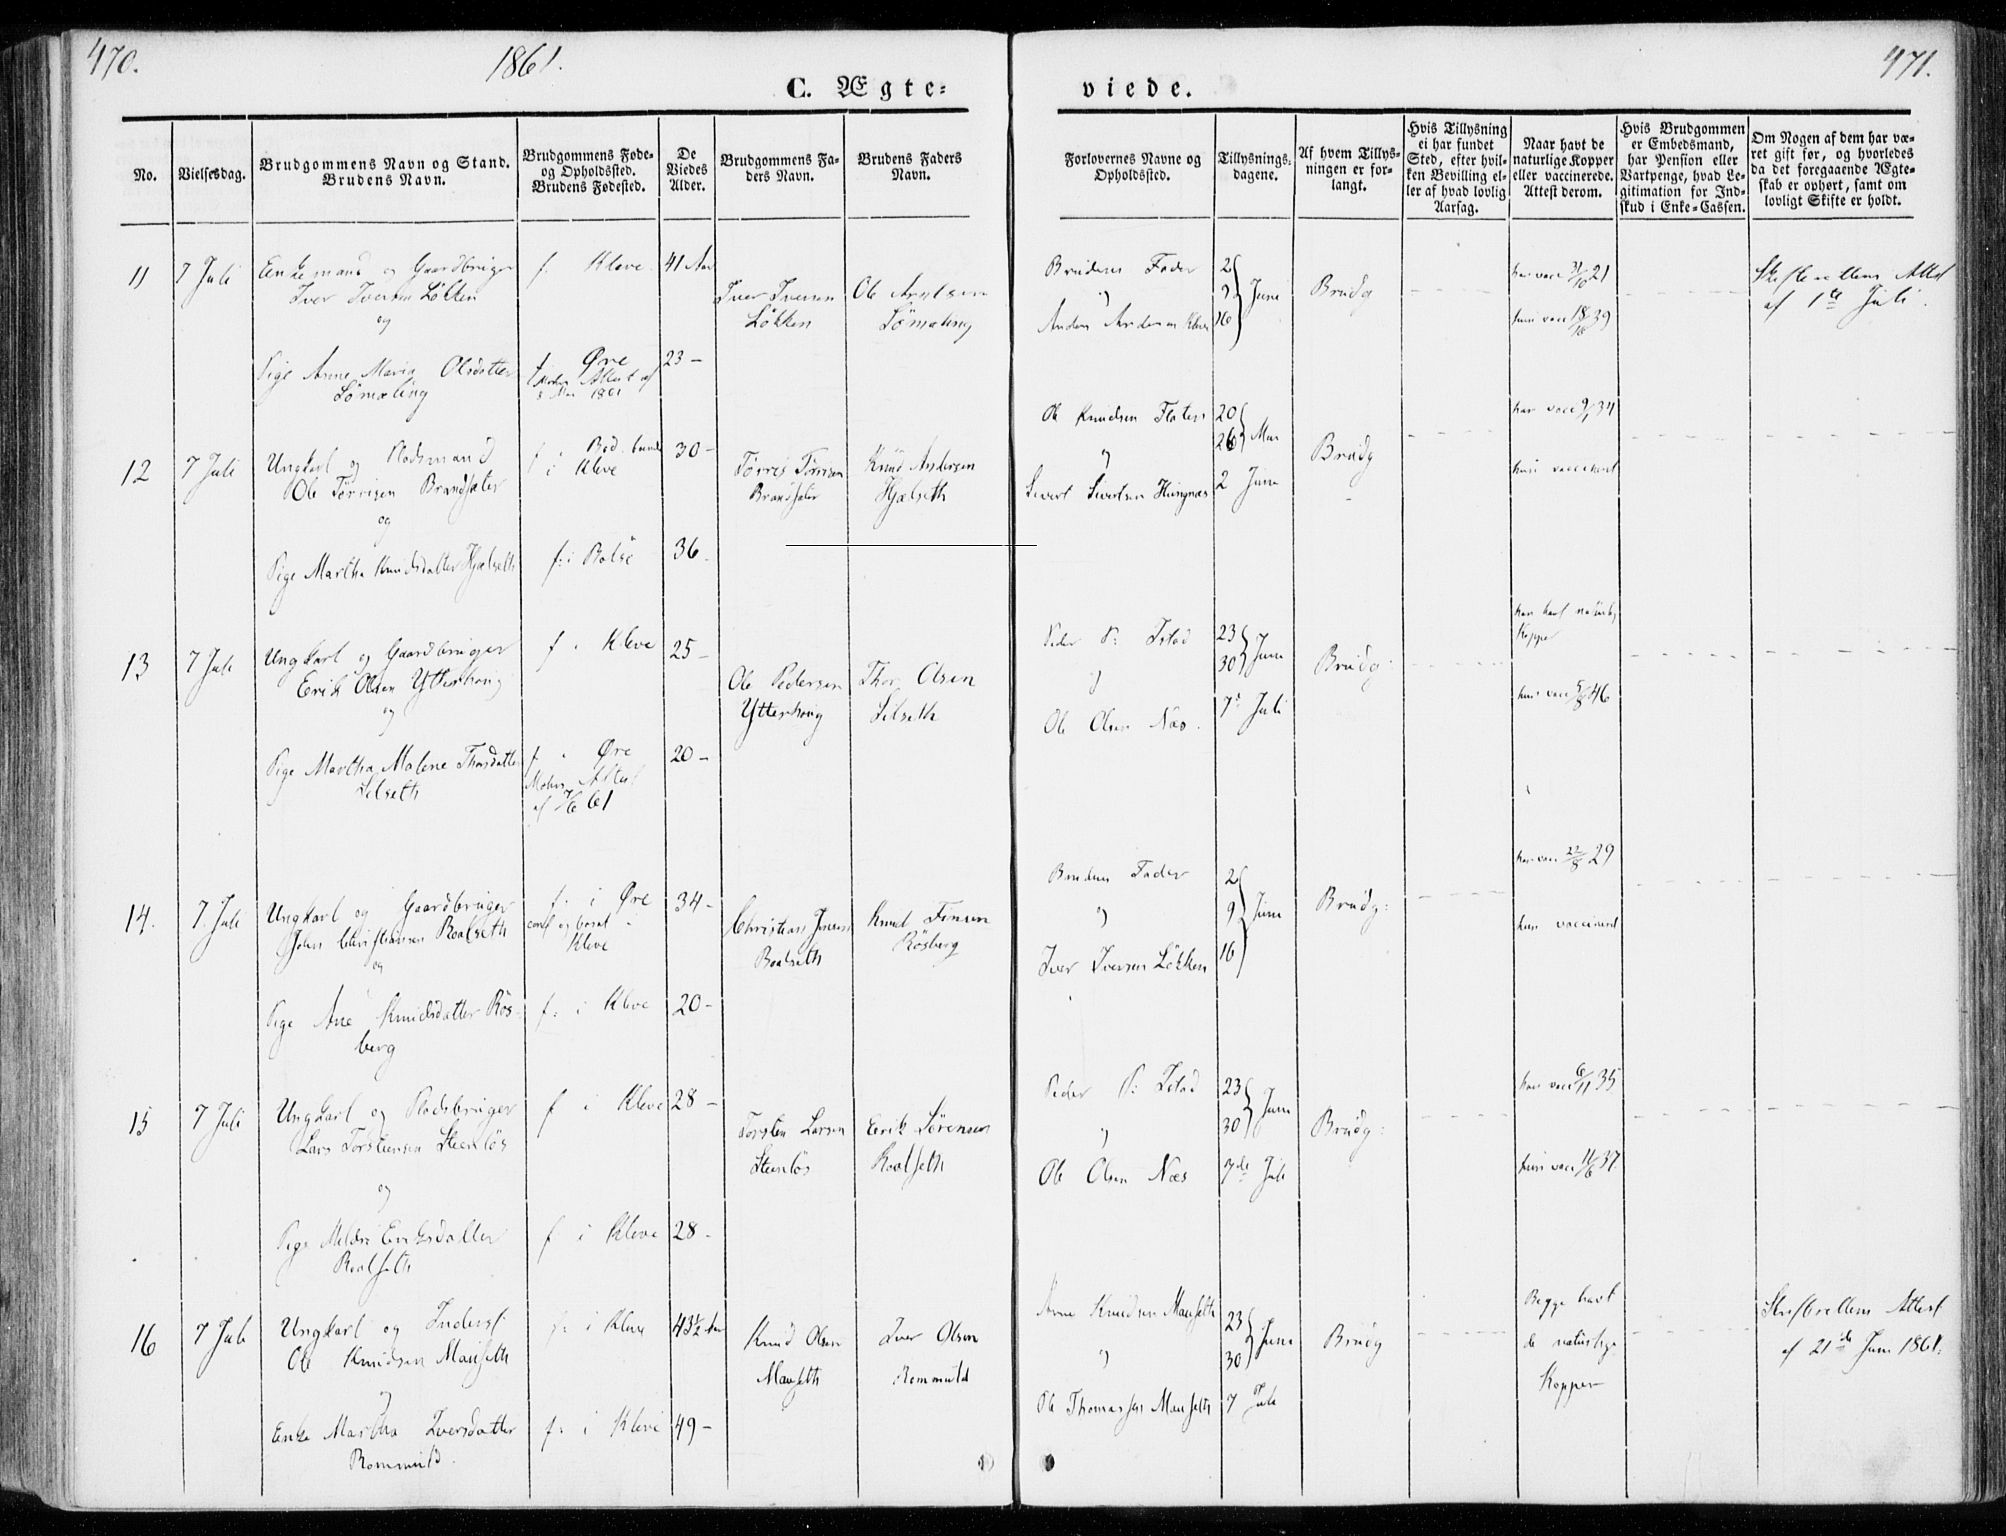 470.
1861.
C. Ægte=
viede.
471.
No.
Vielsesdag.
Brudgommens Navn og Stand.
Brudens Navn.
Brudgommens Føde-
og Opholdssted.
Brudens Fødested.
De
Viedes
Alder.
Brudgommens Fa-
ders Navn.
Brudens Faders
Navn.
Forlovernes Navne og
Opholdssted.
Tillysnings-
dagene.
Af hvem Tillys-
ningen er for-
langt.
Hvis Tillysning
ei har fundet
Sted, efter hvil-
ken Bevilling el-
ler af hvad lovlig
Aarsag.
Naar havt de
naturlige Kopper
eller vaccinerede.
Attest derom.
Hvis Brudgommen
er Embedsmand,
har Pension eller
Vartpenge, hvad Le-
gitimation for Ind-
skud i Enke=Cassen.
Om Nogen af dem har væ-
ret gift før, og hvorledes
da det foregaaende Ægte-
skab er ophørt, samt om
lovligt Skifte er holdt.
11
7 Juli
Enkemand og Gaardbruger
Iver Iversen Løkken
og
Pige Anne Maria Olsdatter
Lømøling
f. Kleve
f. Øre
1861
41 Aar
23 -
Iver Iversen
Løkken
Ole
Lømøling
Brudens Fader
"
Anders Andersen Kleve
2
9
16
Juni
Brudg
han vacc 31/10 21
hun vacc 18/10 39
Skifterettens Attest
af 1te Juli.
12
7 Juli
Ungkarl og Pladsmand
Ole Tørrisen Brandsæter
og
Pige Martha Knudsdatter Hjelseth
i Kleve
f: i Bolsø
30 -
36 -
Tørris Tørrisen
Brandsæter
Knud Andersen
Hjelseth
Ole Knudsen Flaten
"
Sivert Sivertsen Hungnæs
20
26
Mai
2 Juni
Brudg
han vacc 9/ 34
hun vaccineret
13
7 Juli
Ungkarl og Gaardbruger
Erik Olsen Ytterhaug
og
Pige Martha Malene Thorsdatter
Selseth
f i Kleve
f i Øre
Attest
af 7/6 61
25 -
20 -
Ole Pedersen
Ytterhaug
Thor Olsen
Selseth
Peder P: Istad
"
Ole Olsen Næs.
23
30
Juni
7de Juli
Brudg:
han havt naturlig
Kopper
hun vacc 5/8 46
14.
7. Juli
Ungkarl og Gaardbruger
John Christiansen Roalseth
og
Pige Ane Knudsdatter Røs-
berg
f: i Øre
conf og bosat i
Kleve
f: i Kleve
34 -
20 -
Christian Jensen
Roalseth
Knud Finsen
Røsberg
Brudens Fader
"
Iver Iversen Løkken
2
9
16
Juni
Brudg:
han vacc 22/8 29
hun vaccineret
15
7 Juli
Ungkarl og Pladsbruger
Lars Torstensen Steenløs
og
Pige Meldri Eriksdatter
Roalseth
f i Kleve
f i Kleve
28 -
28 -
Torsten Larsen
Steenløs
Erik Sørensen
Roalseth
Peder P: Istad
"
Ole Olsen Næs
23
30
Juni
7de Juli
Brudg:
han vacc 6/11 35
hun vacc 11/6 37
16
7 Juli
Ungkarl og Inderst
Ole Knudsen Mauseth
og
Enke Martha Iversdatter
Rommuld.
f: i Kleve
f: i Kleve
43½ Aar
49 -
Knud Olsen
Mauseth
Iver Olsen
Rommuld
Arne Knudsen Mauseth
"
Ole Thomassen Mauseth
23
30
Juni
7 Juli
Brudg
Begge havt
de naturlige
Kopper
Skifterettens Attest
af 21de Juni 1861.